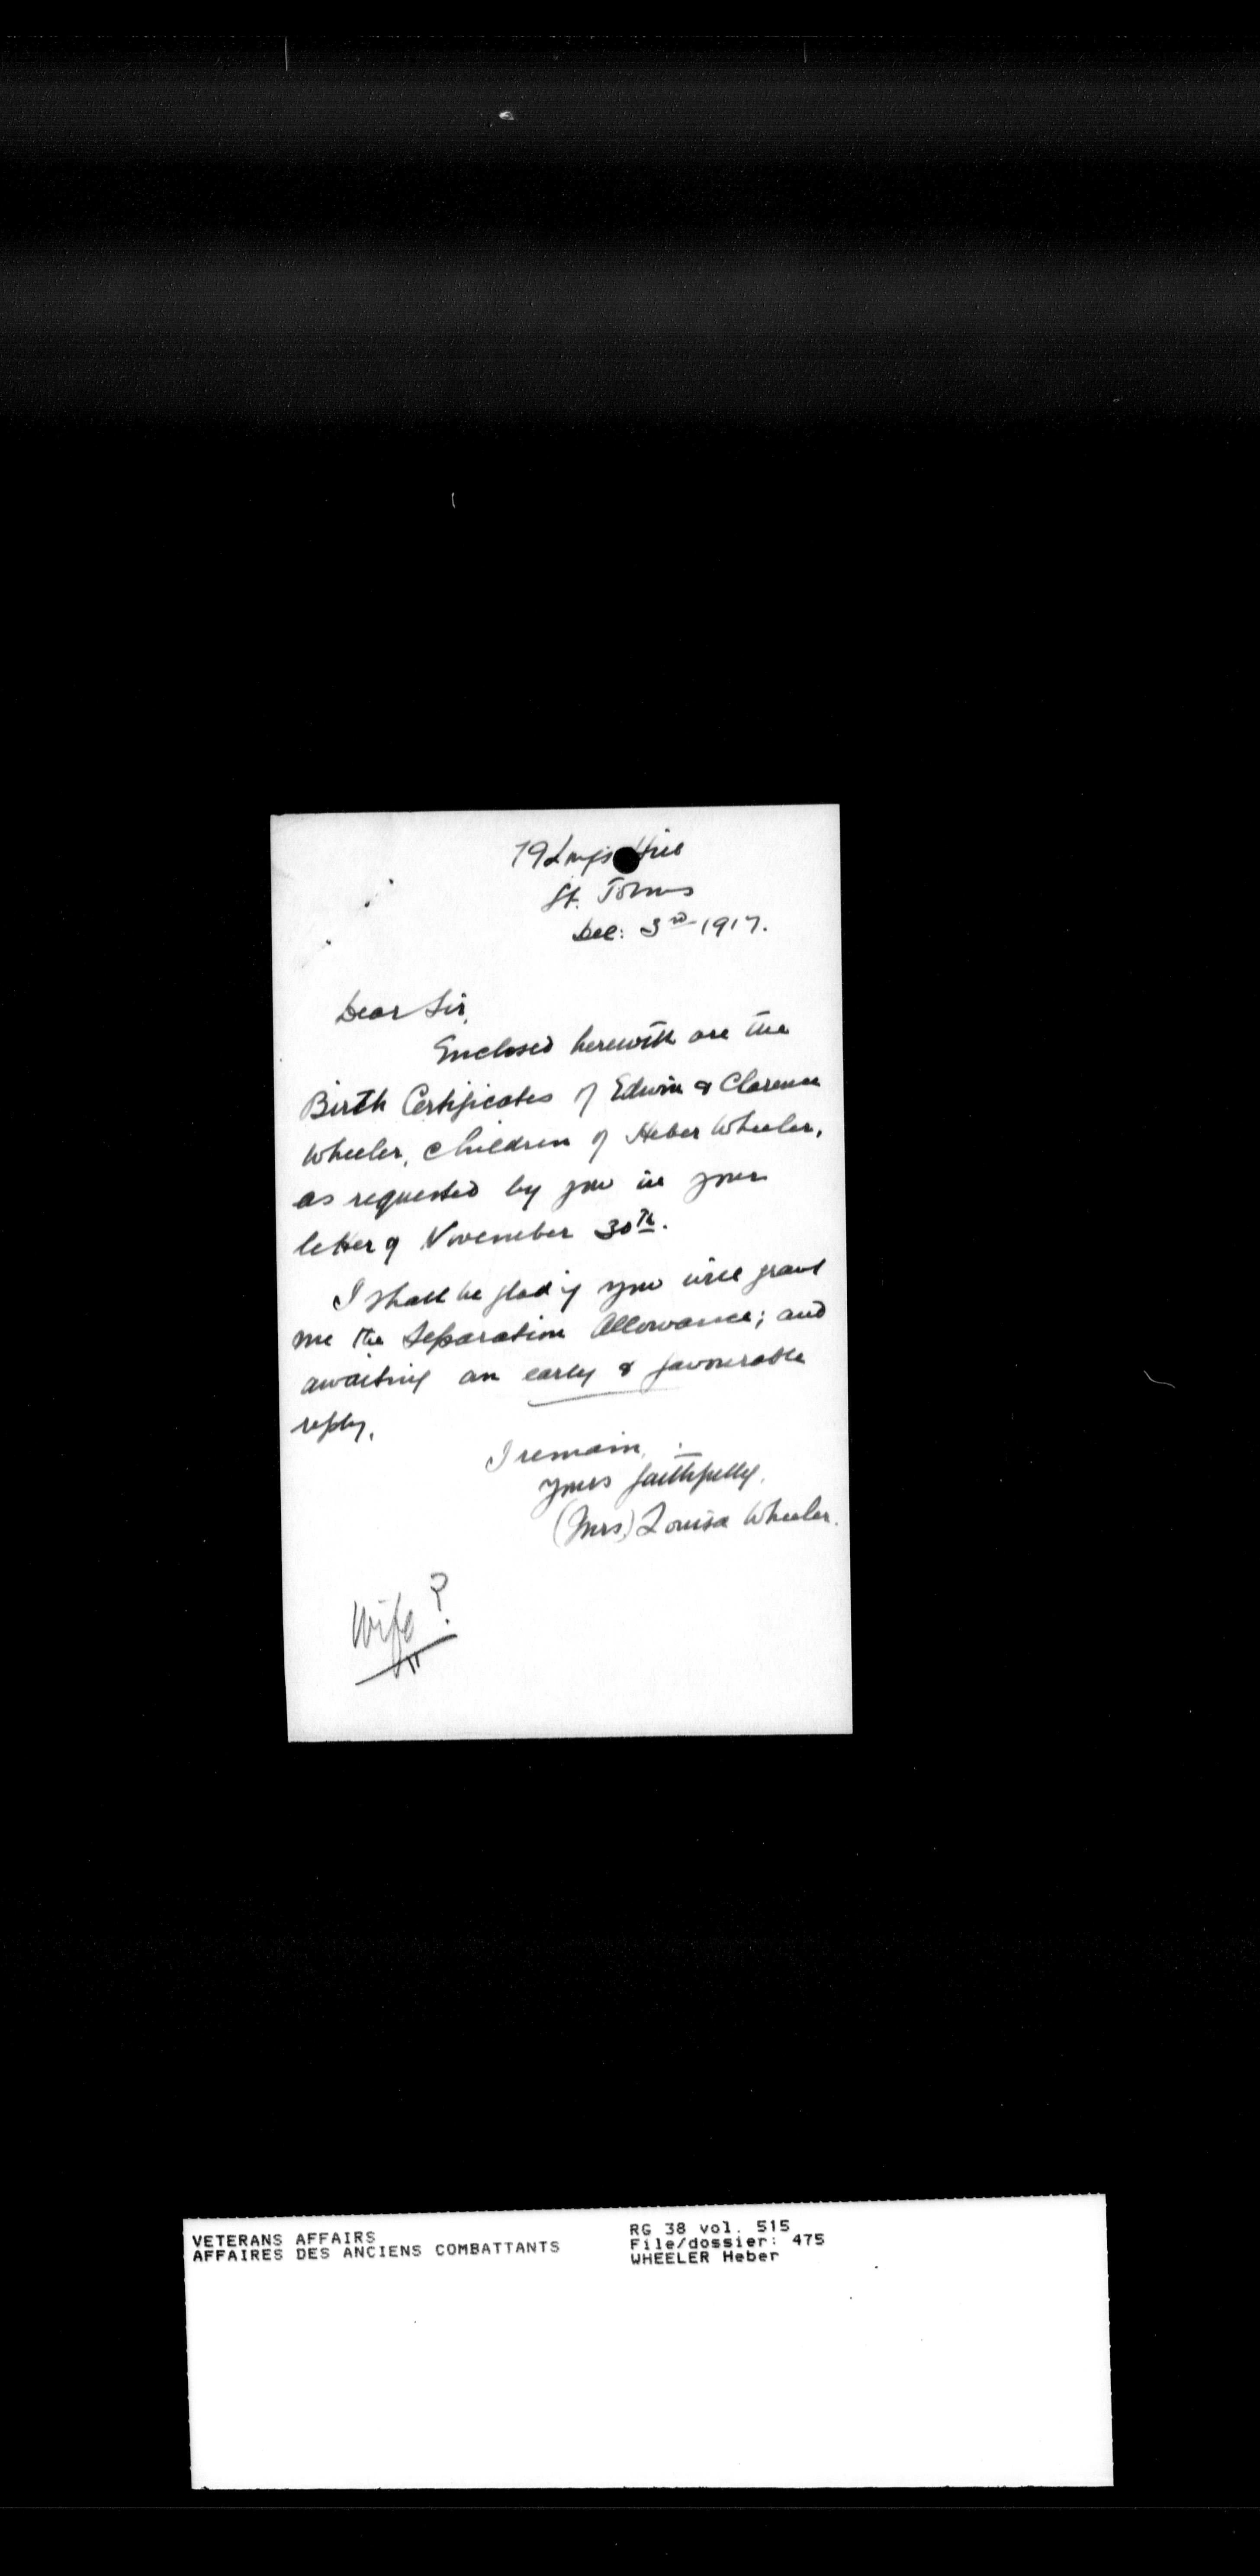 79 Longs Hill
St. Johns
Dec: 3rd 1917.
Dear Sir,
Enclosed herewith are the
Birth Certificates of Edwin & Clarence
Wheeler, children of Heber Wheeler,
as requested by you in your
letter of November 30th.
I shall be glad if you will grant
me the Separation Allowance; and
awaiting an early & favourable
reply,
I remain,
Yours faithfully,
(Mrs.) Louisa Wheeler.
Wife?
VETERANS AFFAIRS
AFFAIRES DES ANCIENS COMBATTANTS
RG 38 vol. 515
File/dossier: 475
WHEELER Heber